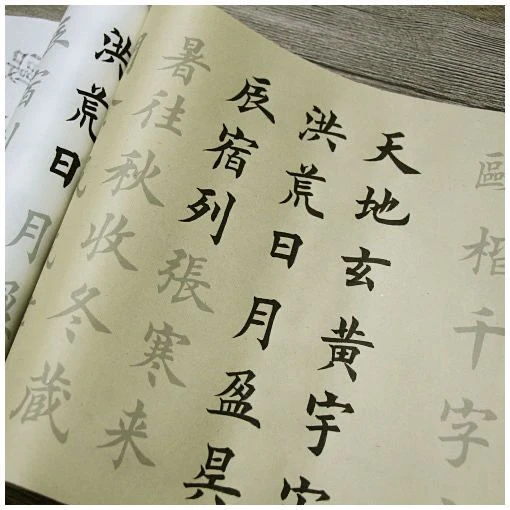 歐楷千字
天地玄黃宇
洪荒日月盈昃
辰宿列張寒来
暑往秋收冬藏
洪荒日月
宿列